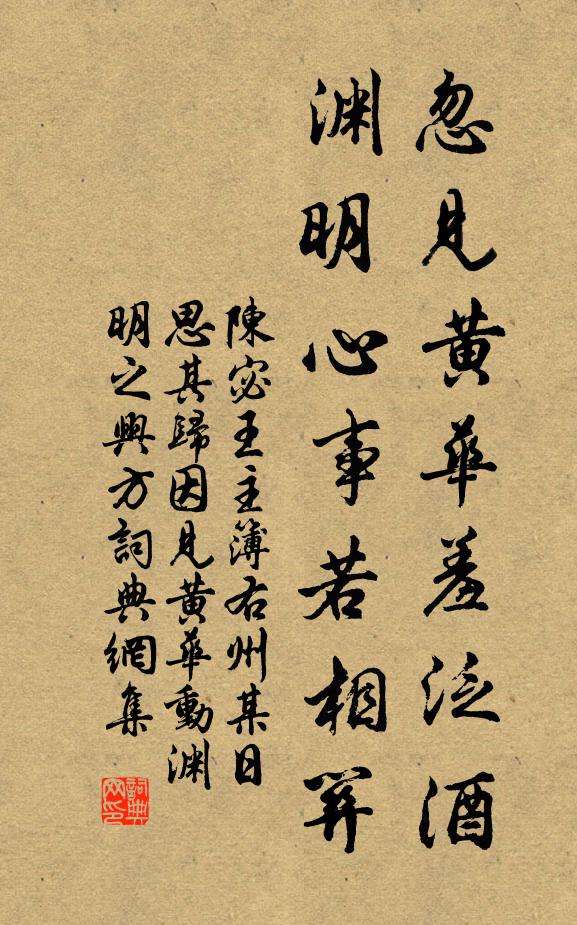 忽見黃華羞泛酒
渊明心事若相關
陳宓王主簿右州某日
思其歸因見黃華動渊
明之興方詞典網集
詞典网印